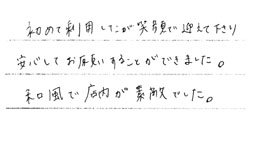 初めて利用したが笑顔で迎えて下さり
安心してお願いすることができました。
和風で店内が素敵でした。